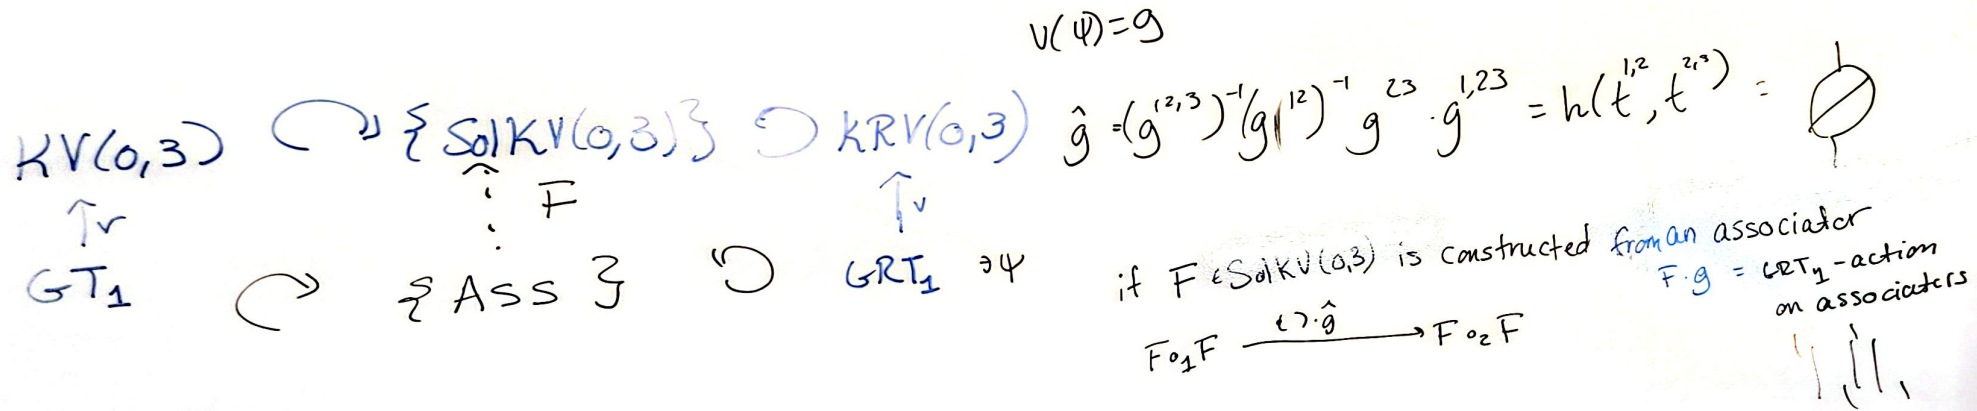 ν(ψ)=g
KV(0,3) ↷ {SolKV(0,3)} ↶ KRV(0,3) ĝ = (g^{12,3})^{-1} (g^{12})^{-1} g^{23} · g^{1,23} = h(t^{1,2}, t^{2,3}) =
↑ν F ↑ν
GT₁ ↷ {Ass} ↶ GRT₁ ∋ψ
if F ∈ SolKV(0,3) is constructed from an associator
F·g = GRT₁-action
on associators
F∘₁F ⟶ F∘₂F